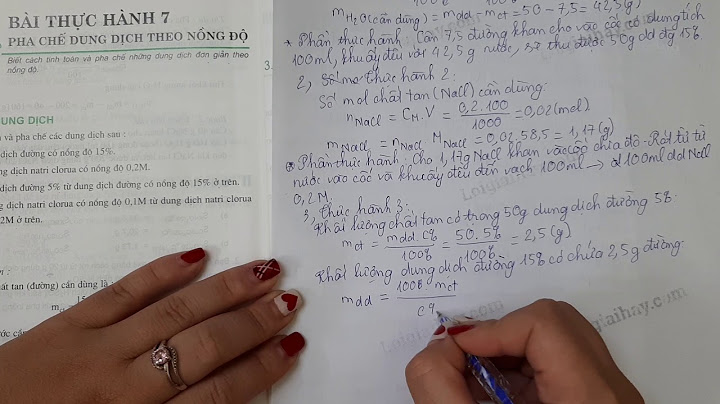 BÀI THỰC HÀNH 7
PHA CHẾ DUNG DỊCH THEO NỒNG ĐỘ
Biết cách tính toán và pha chế những dung dịch đơn giản theo
nồng độ.
3.
DUNG DỊCH
và pha chế các dung dịch sau :
dịch đường có nồng độ 15%.
dịch natri clorua có nồng độ 0,2M.
dịch đường 5% từ dung dịch đường có nồng độ 15% ở trên.
dịch natri clorua có nồng độ 0,1M từ dung dịch natri clorua
2M ở trên.
chất tan (đường) cần dùng là :
100% 100%
mH2O (cần dùng) = mdd - mct = 50 - 7,5 = 42,5 (g)
* Phần thực hành: Cân 7,5 đường khan cho vào cốc có dung tích
100ml, khuấy đều với 42,5 g nước, sẽ thu được 50g dd đg 15%
2, thực hành 2:
Số mol chất tan (NaCl) cần dùng:
nNaCl = CM.V = 0,2.100 / 1000 = 0,02 (mol)
mNaCl = nNaCl MNaCl = 0,02.58,5 = 1,17 (g)
Phần thực hành: Cho 1,17g NaCl khan vào cốc chia độ. Rót từ từ
nước vào cốc và khuấy đều đến vạch 100ml → đ 100ml dd NaCl
0,2M.
3, Thực hành 3:
Khối lượng chất tan có trong 50g dung dịch đường 5%:
mct = mdd.C% / 100% = 50.5% / 100% = 2,5 (g)
Khối lượng dung dịch đường 15% có chứa 2,5g đường:
mdd = 100% mct / C%
Loigiaihay.com
Loigiaihay.com
Loigiaihay.com